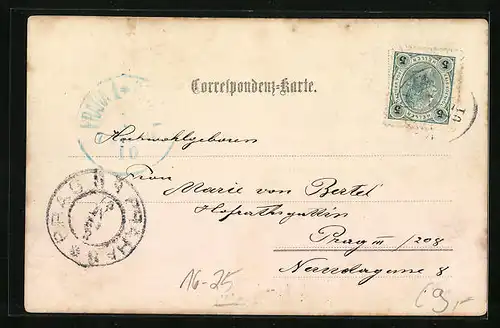 Correspondenz-Karte.
Hochwohlgeboren
Frau
Marie von Bertel
Hofrathsgattin
Prag III /208
8
PRAG
PRAHA
10
5 5
5 5
16-25